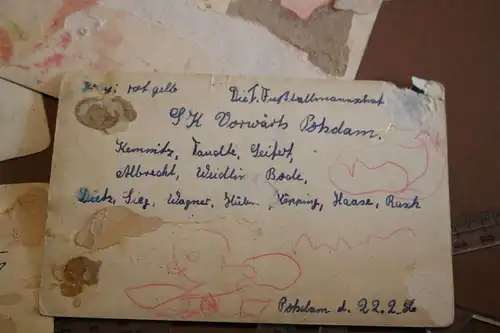 rot gelb Die I. Fußballmannschaft
SK Vorwärts Potsdam.
Kemnitz, Tandte, Seifert,
Albrecht, Weidlin Bode,
Dietz, Sieg, Wagner, Hübn. Känning, Haase, Rusch
Potsdam d. 22.2.36